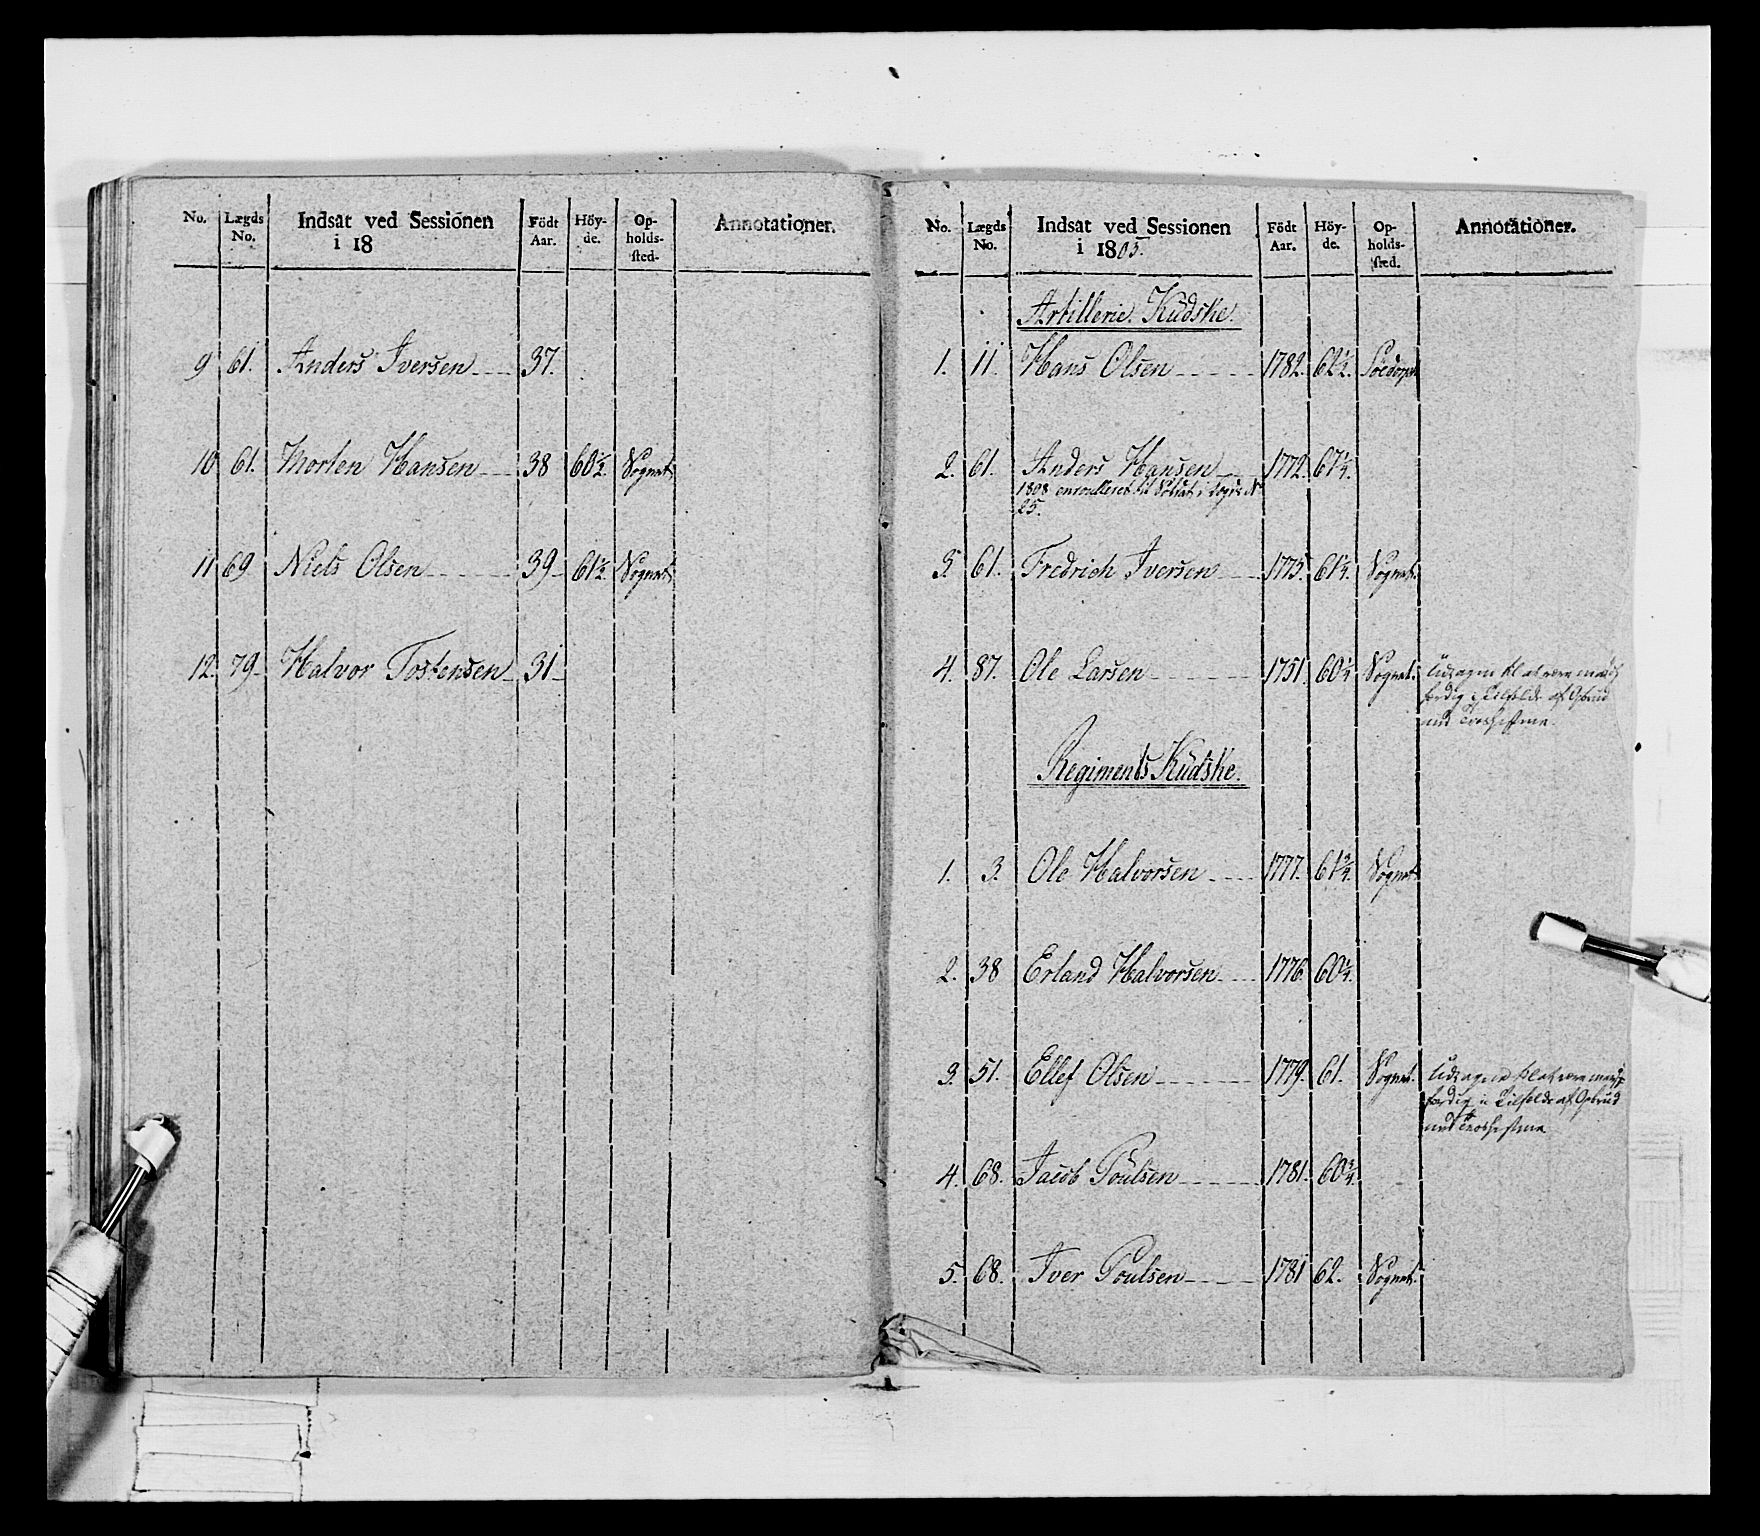 No. Lægds No. Indsat ved Sessionen i 18 Födt Aar. Höyde. Opholdssted. Annotationer.
9 61. Anders Iversen 37.
10 61. Morten Hansen 38 60½ Sognet
11 69 Niels Olsen 39 61½ Sognet
12. 79 Halvor Tostensen 31
No. Lægds No. Indsat ved Sessionen i 1805. Födt Aar. Höyde. Opholdssted. Annotationer.
Artillerie Kudske.
1. 11. Hans Olsen 1782. 62½.
2. 61. Anders Hansen 1772. 67¼.
1808 enroulleret til Soldat i
25.
3. 61. Fredrich Iversen 1775. 61¼. Sognet.
4. 87. Ole Larsen 1751. 60¼ Sognet. at være
færdig i Tilfælde af
med
Regiments Kudske.
1. 3. Ole Halvorsen 1777. 61¾ Sognet
2. 38 Erland Halvorsen 1776 60¼.
3. 51. Ellef Olsen 1779. 61. Sognet. at være
færdig i Tilfælde af
med
4. 68. Jacob Poulsen 1781. 60¾.
5. 68. Iver Poulsen 1781 62. Sognet.